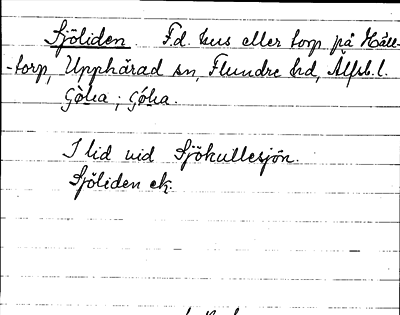 Sjöliden F.d. hus eller torp på Håll-
-torp, Upphärad sn, Flundre hd, Älfsb. l.
Göha ; Góha.
I lid vid Sjökullesjön.
Sjöliden ek.